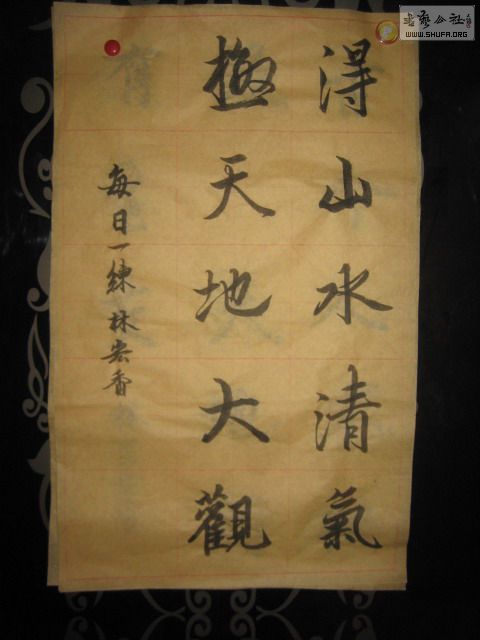 得山水清氣
極天地大觀
每日一練 林宏香
書藝公社
WWW.SHUFA.ORG